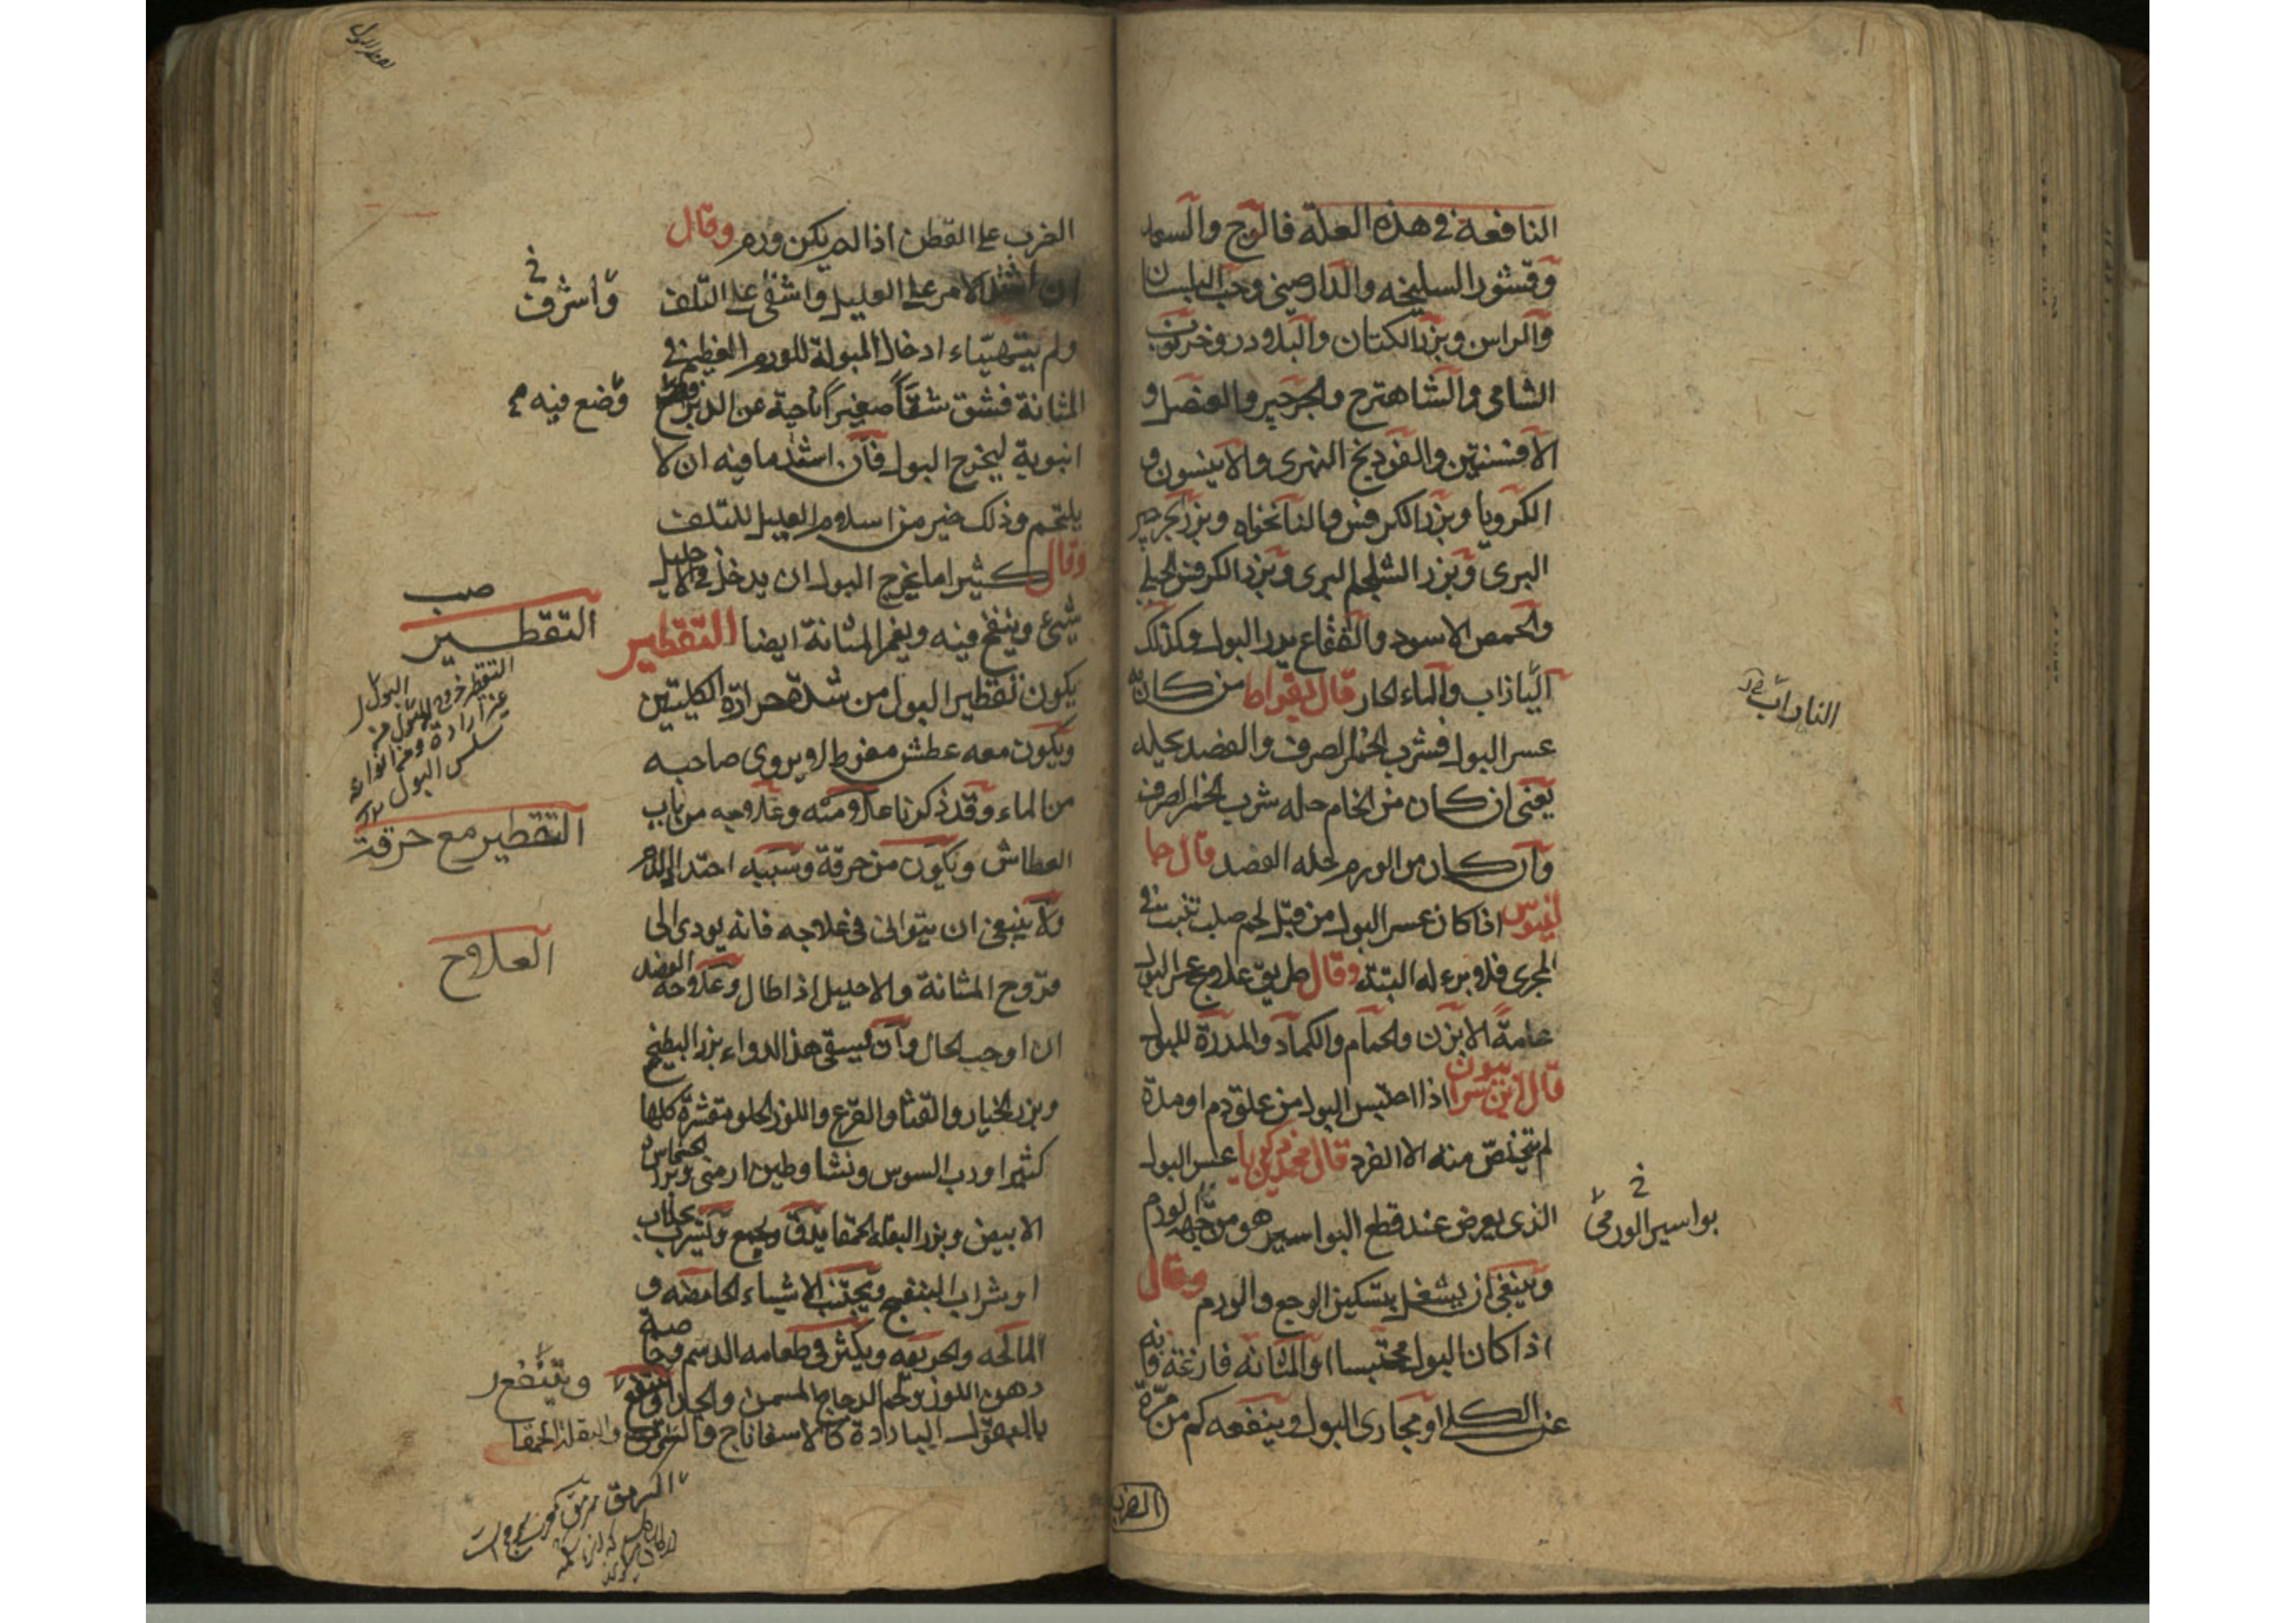 النافعة في هذه العلة فالوج والسعد
وقشور السليخه والدارصيني وحب البلسان
والراسن وبزر الكتان والبلادر وخرنوب
الشامي والشاهترج والجرجير والعنصل و
الافسنتين والفودنج النهري والانيسون و
الكرويا وبزر الكرفس والنانخواه وبزر الجرجير
البري وبزر الشلجم البري وبزر الكرفس الجبلي
والحمص الاسود والفقاع يدر البول وكذلك
والماء الحار قال بقراط من كان به
عسر البول فشرب الخمر الصرف والفصد يحله
يعني ان كان من الخام حله شرب الخمر الصرف
وان كان من الورم حله الفصد قال جا
لينوس اذا كان عسر البول من قبل لحم صلب تنبت في
المجرى فلا برء له البتة وقال طريق علاج عسر البول
عامة الابزن والحمام والكماد والمدرة للبول
قال ابن سرابيون اذا احتبس البول من علق دم او مدة
لم تخلص منه الا الفرد قال محمد بن زكريا عسر البول
الذي يعرض عند قطع البواسير هو من جهة الورم
وينبغي ان يشغل بتسكين الوجع والورم وقال
اذا كان البول محتبسا والمثانه فارغة فانه
عن الكلى او مجاري البول وينفعه كم من مرة
بواسير الورمى
الضرب
الضرب على القطن اذا لم يكن ورم وقال
ان اشتد الامر على العليل واشفى على التلف
واشرف خ
ولم يتهياء ادخال المبولة للورم العظيم في
المثانة فشق شقا صغيرا ناحية عن الدبر
وضع فيه
انبوبة ليخرج البول فان اشد ما فيه ان لا
يلتحم وذلك خير من اسلام العليل للتلف
وقال كثيرا ما يخرج البول ان يدخل في الاحليل
شيء وينفخ فيه ويغمز المثانة ايضا التقطير
التقطير
يكون تقطير البول من شدة حرارة الكليتين
ويكون معه عطش مفرط لا يروى صاحبه
سلس البول
من الماء وقد ذكرنا علامته وعلاجه من باب
التقطير مع حرقة
العطاش ويكون من حرقة وسببه احتداد
ولا ينبغي ان يتوانى في علاجه فانه يودي الى
العلاج
قروح المثانة والاحليل اذا طال وعلاجه الفصد
ان اوجب الحال وان يسقى هذا الدواء بزر البطيخ
وبزر الخيار والقثا والقرع واللوز الحلو مقشرة كلها
كثيرا ورب السوس ونشا وطين ارمني وبزر الخشخاش
الابيض وبزر البقله الحمقا يدق ويجمع ويشرب بجلاب
او شراب البنفسج ويجتنب الاشياء الحامضه و
المالحه والحريفه ويكثر في طعامه الدسم وخاصة
دهن اللوز ولحم الدجاج المسمن والجدا وينتفع
بالبقول الباردة كالاسفاناج والسرمق والبقلة الحمقا